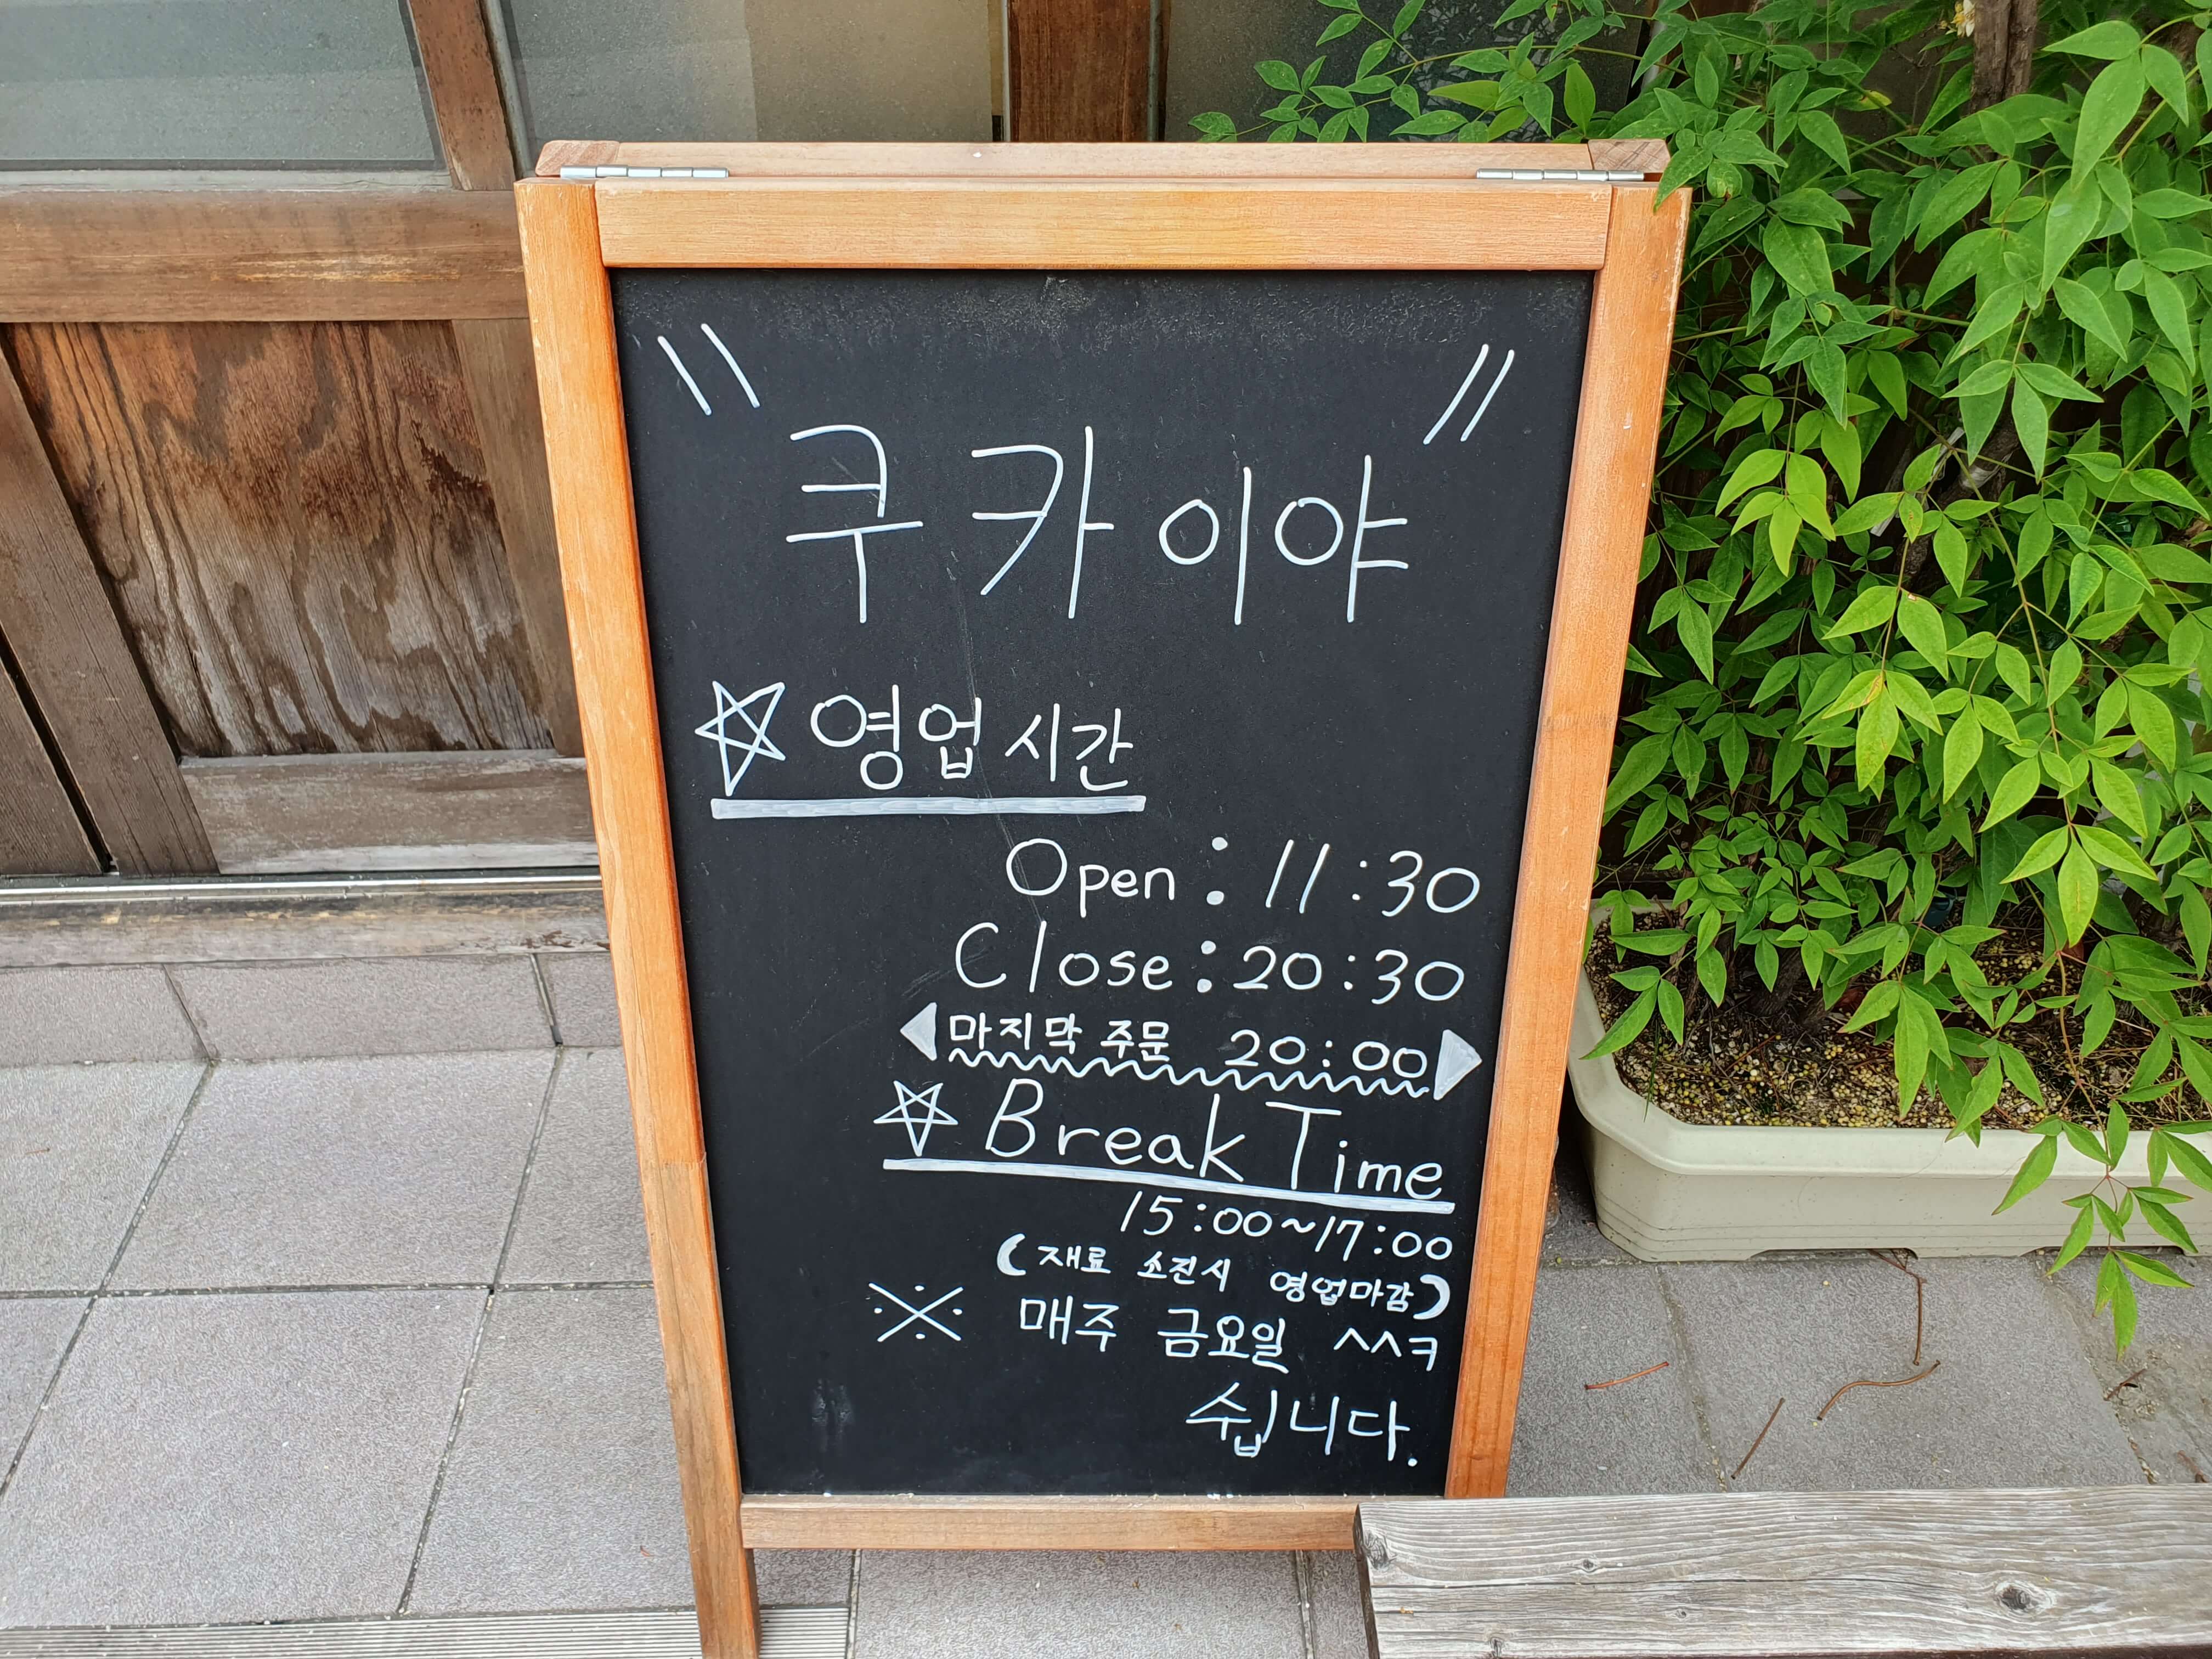 쿠카이야
☆영업시간
Open : 11:30
Close : 20:30
◀마지막 주문 20:00▶
☆Break Time
15:00~17:00
(재료 소진시 영업마감)
※ 매주 금요일 ^^ㅋ
쉽니다.